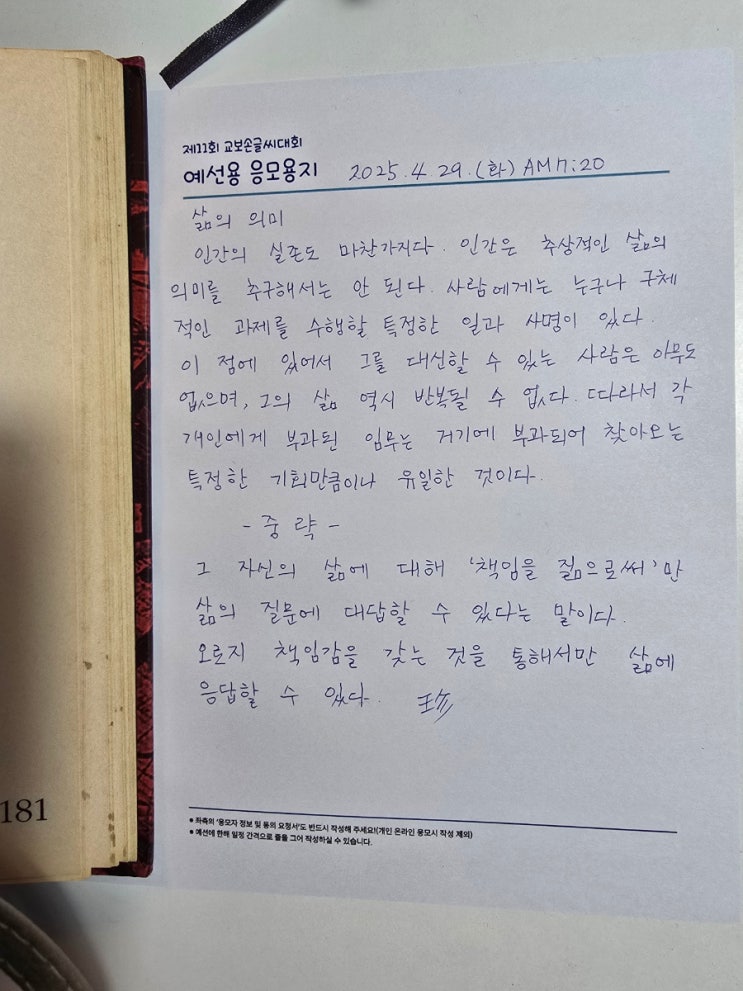 제11회 교보손글씨대회
예선용 응모용지 2025.4.29.(화) AM 7:20
삶의 의미
인간의 실존도 마찬가지다. 인간은 추상적인 삶의
의미를 추구해서는 안 된다. 사람에게는 누구나 구체
적인 과제를 수행할 특정한 일과 사명이 있다.
이 점에 있어서 그를 대신할 수 있는 사람은 아무도
없으며, 그의 삶 역시 반복될 수 없다. 따라서 각
개인에게 부과된 임무는 거기에 부과되어 찾아오는
특정한 기회만큼이나 유일한 것이다.
- 중략 -
그 자신의 삶에 대해 '책임을 짊으로써'만
삶의 질문에 대답할 수 있다는 말이다.
오로지 책임감을 갖는 것을 통해서만 삶에
응답할 수 있다.
181
• 좌측의 '응모자 정보 및 동의 요청서'도 반드시 작성해 주세요!(개인 온라인 응모시 작성 제외)
• 예선에 한해 일정 간격으로 줄을 그어 작성하실 수 있습니다.